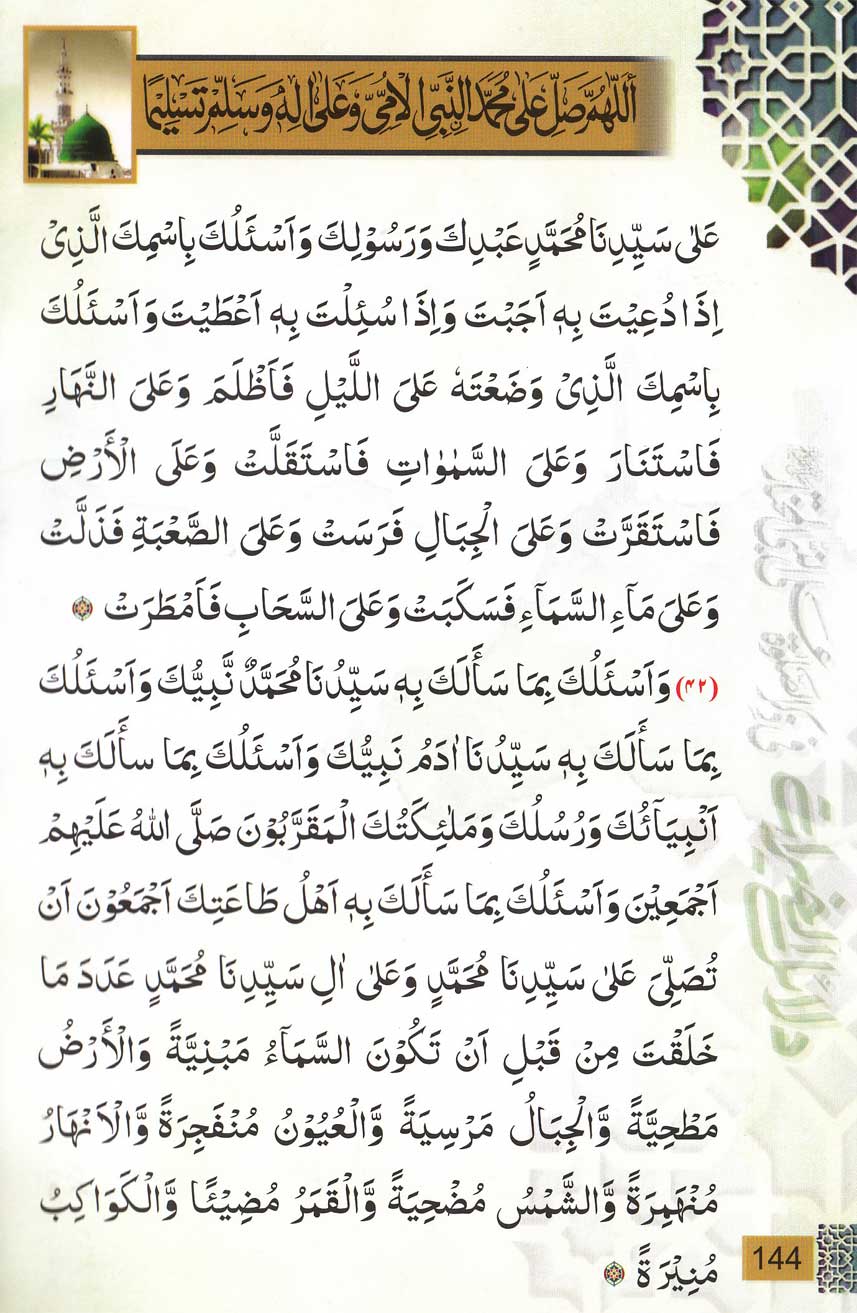 اَللّٰهُمَّ صَلِّ عَلٰى مُحَمَّدِ ࣙالنَّبِيِّ الْاُمِّيِّ وَعَلٰٓى اٰلِهٖ وَسَلِّمْ تَسْلِيْمًا
عَلٰى سَيِّدِنَا مُحَمَّدٍ عَبْدِكَ وَرَسُوْلِكَ وَاَسْئَلُكَ بِاسْمِكَ الَّذِىْ
اِذَا دُعِيْتَ بِهٖ اَجَبْتَ وَاِذَا سُئِلْتَ بِهٖ اَعْطَيْتَ وَاَسْئَلُكَ
بِاسْمِكَ الَّذِىْ وَضَعْتَهٗ عَلَى اللَّيْلِ فَاَظْلَمَ وَعَلَى النَّهَارِ
فَاسْتَنَارَ وَعَلَى السَّمٰوٰاتِ فَاسْتَقَلَّتْ وَعَلَى الْاَرْضِ
فَاسْتَقَرَّتْ وَعَلَى الْجِبَالِ فَرَسَتْ وَعَلَى الصَّعْبَةِ فَذَلَّتْ
وَعَلٰى مَآءِ السَّمَآءِ فَسَكَبَتْ وَعَلَى السَّحَابِ فَاَمْطَرَتْ
(۴۲) وَاَسْئَلُكَ بِمَا سَأَلَكَ بِهٖ سَيِّدُنَا مُحَمَّدٌ نَّبِيُّكَ وَاَسْئَلُكَ
بِمَا سَأَلَكَ بِهٖ سَيِّدُنَا اٰدَمُ نَبِيُّكَ وَاَسْئَلُكَ بِمَا سأَلَكَ بِهٖ
اَنْبِيَآئُكَ وَرُسُلُكَ وَمَلٰئِكَتُكَ الْمَقَرَّبُوْنَ صَلَّى اللهُ عَلَيْهِمْ
اَجْمَعِيْنَ وَاَسْئَلُكَ بِمَا سَأَلَكَ بِهٖ اَهْلُ طَاعَتِكَ اَجْمَعُوْنَ اَنْ
تُصَلِّىَ عَلٰى سَيِّدِنَا مُحَمَّدٍ وَعَلٰى اٰلِ سَيِّدِنَا مُحَمَّدٍ عَدَدَ مَا
خَلَقْتَ مِنْ قَبْلِ اَنْ تَكُوْنَ السَّمَآءُ مَبْنِيَّةً وَالْاَرْضُ
مَطْحِيَّةً وَّالْجِبَالُ مَرْسِيَةً وَّالْعُيُوْنُ مُنْفَجِرَةً وَّالْاَنْهَارُ
مُنْهَمِرَةً وَّالشَّمْسُ مُضْحِيَةً وَّالْقَمَرُ مُضِيْئًا وَّالْكَوَاكِبُ
مُنِيْرَةً
144